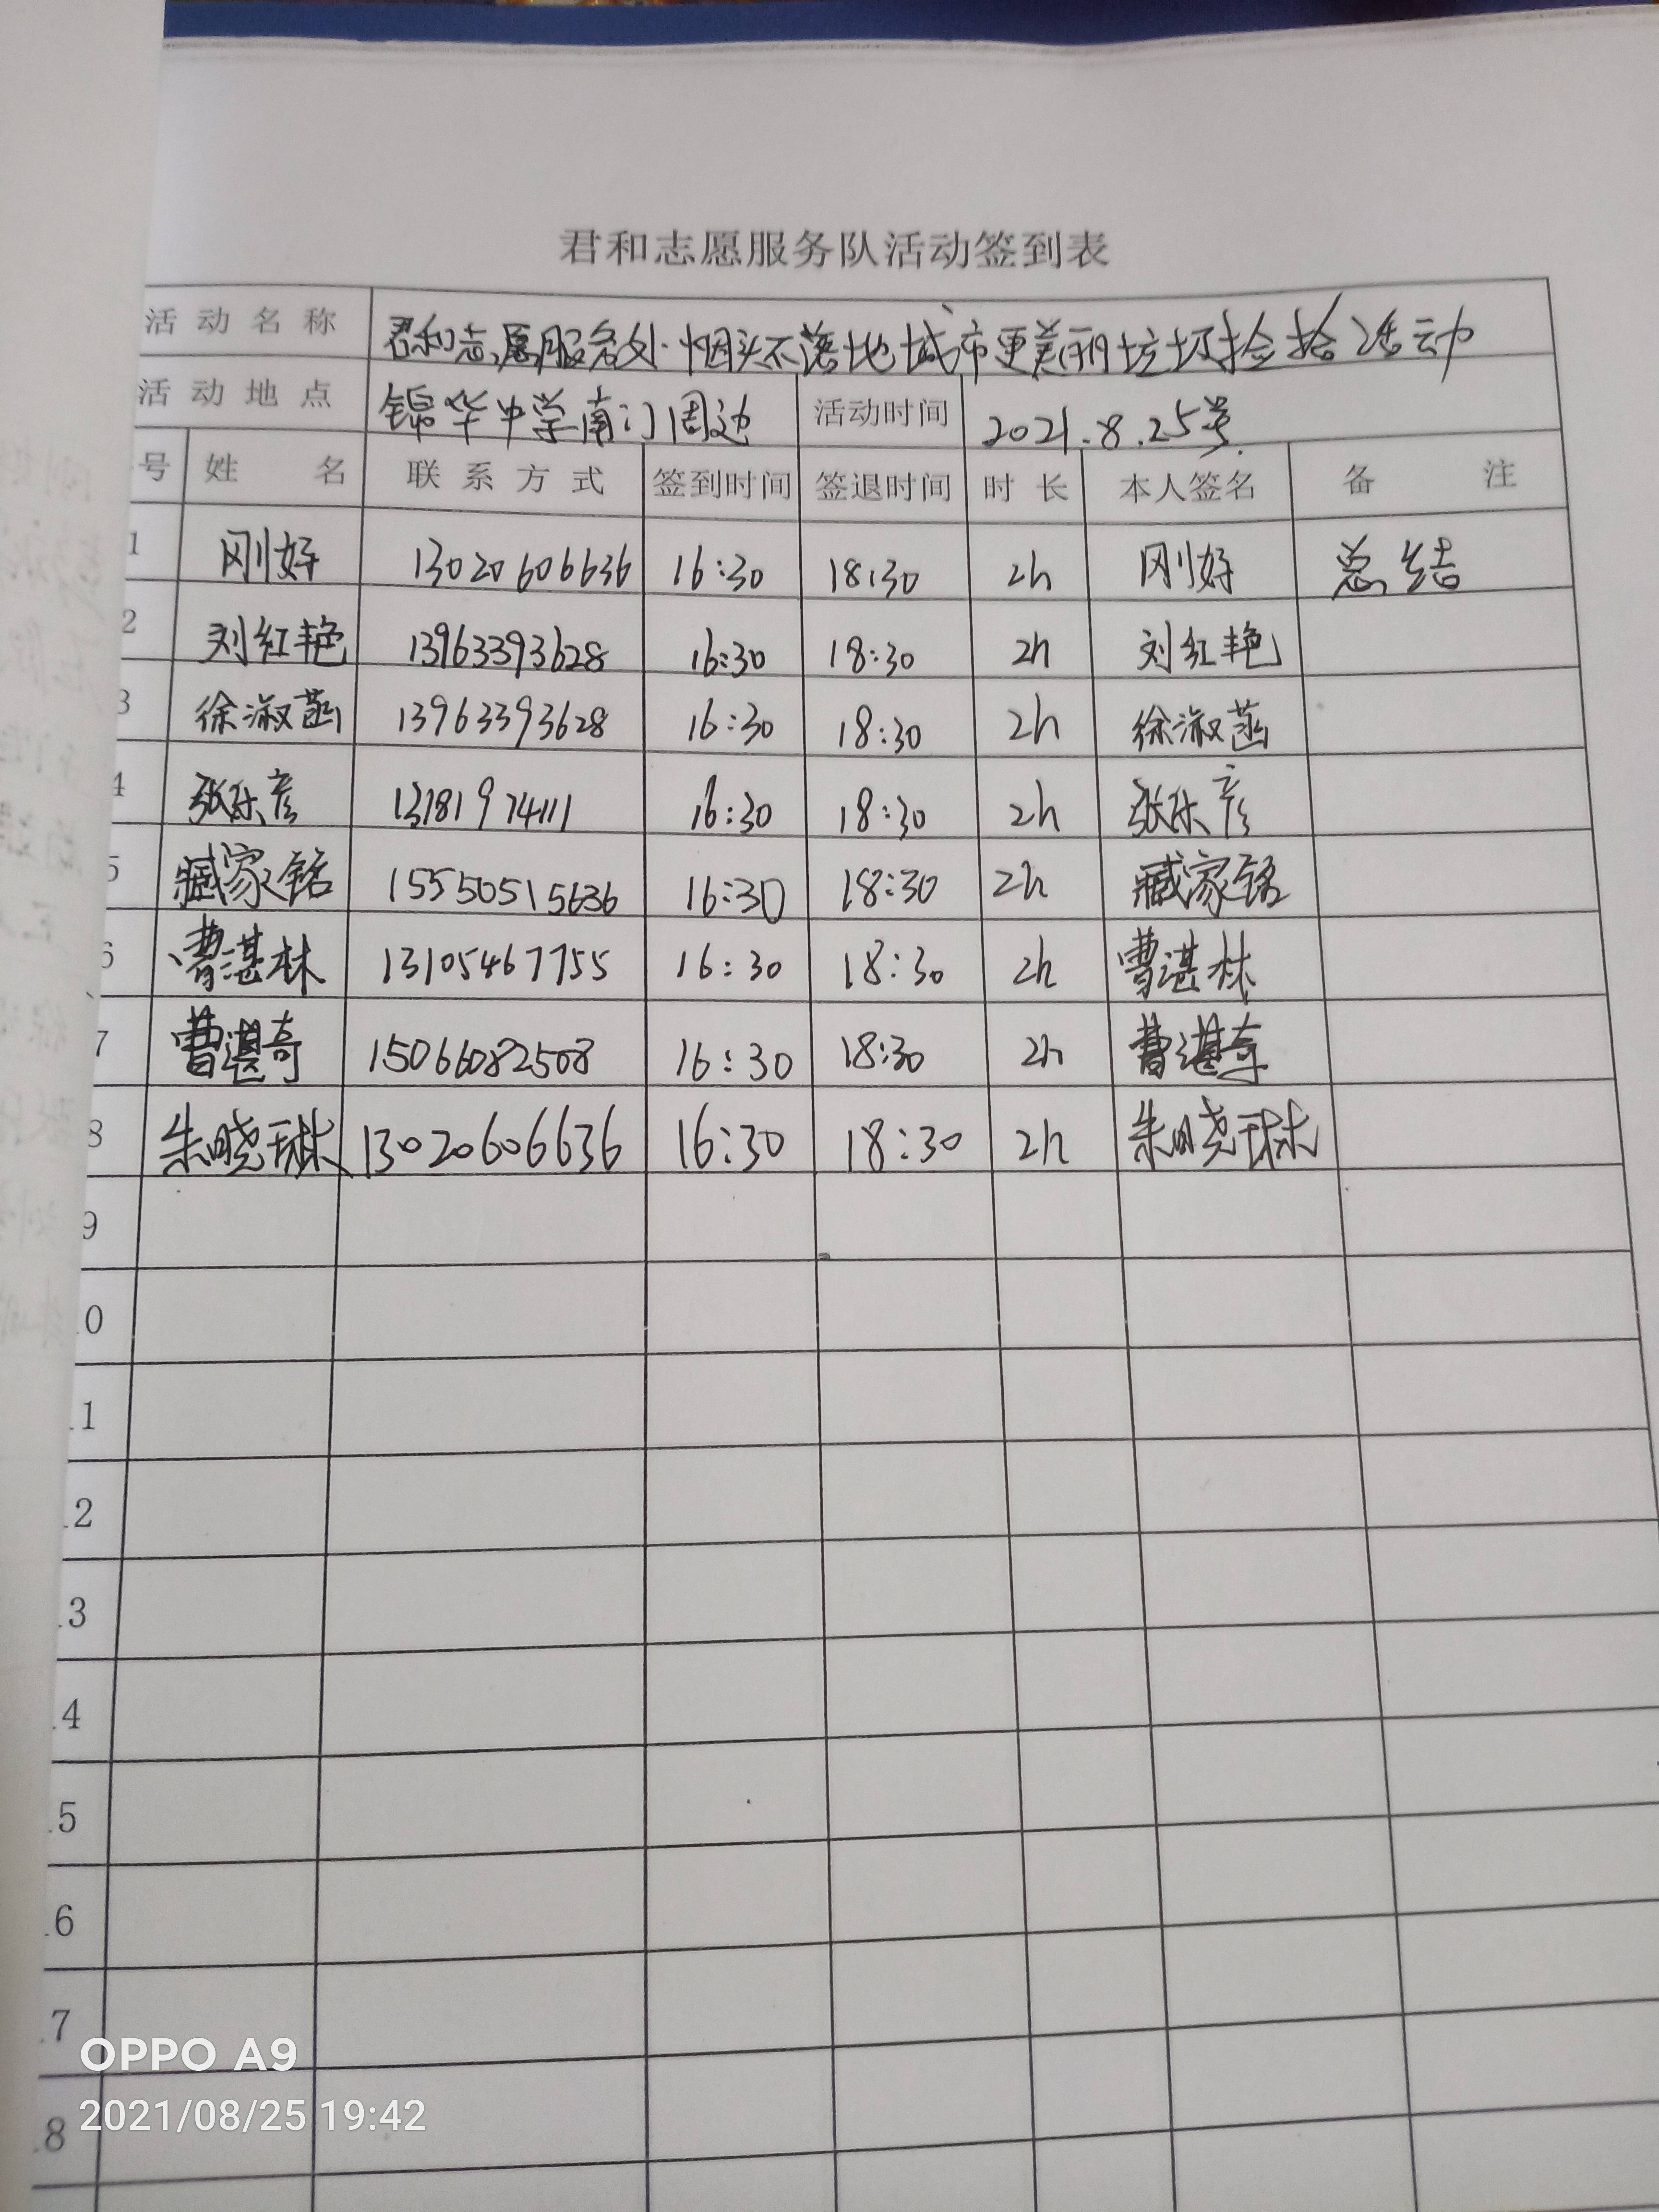 君和志愿服务队活动签到表
活动名称 君和志愿服务处·烟头不落地城市更美丽垃圾捡拾活动
活动地点 锦华中学南门周边 活动时间 2021.8.25号
号 姓名 联系方式 签到时间 签退时间 时长 本人签名 备注
1 刚好 13020606636 16:30 18:30 2h 刚好 总结
2 刘红艳 13963393628 16:30 18:30 2h 刘红艳
3 徐淑菡 13963393628 16:30 18:30 2h 徐淑菡
4 张乐彦 13181974111 16:30 18:30 2h 张乐彦
5 臧家铭 15550515636 16:30 18:30 2h 臧家铭
6 曹湛林 13105467755 16:30 18:30 2h 曹湛林
7 曹湛奇 15066082508 16:30 18:30 2h 曹湛奇
8 朱晓琳 13020606636 16:30 18:30 2h 朱晓琳
9
10
11
12
13
14
15
16
17
18
OPPO A9
2021/08/25 19:42